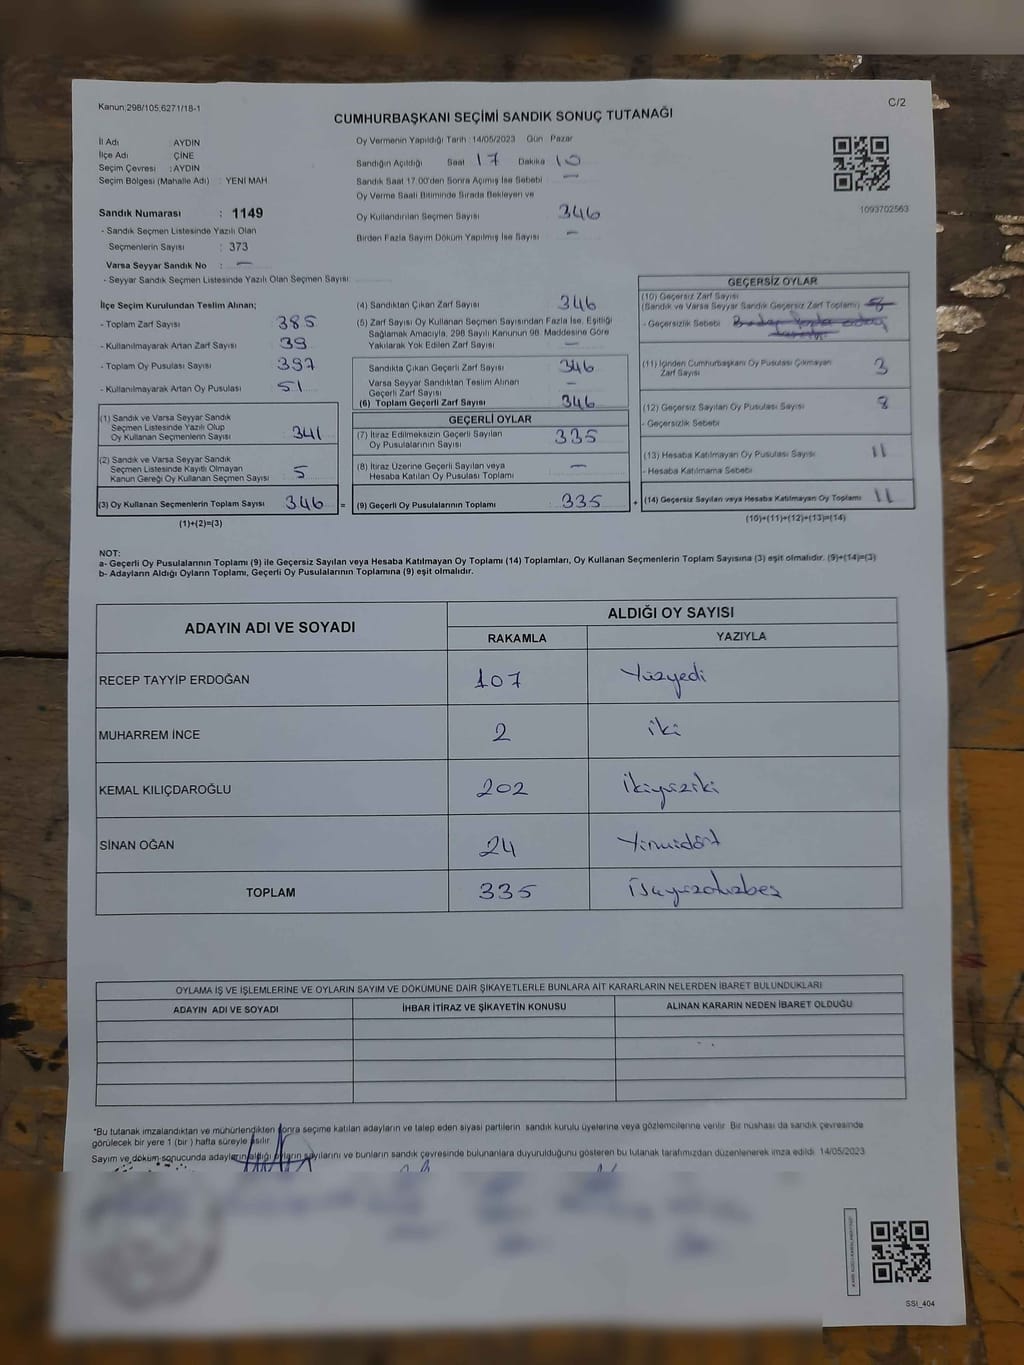 Kanun;298/105,6271/18-1
C/2
CUMHURBAŞKANI SEÇİMİ SANDIK SONUÇ TUTANAĞI
İl Adı AYDIN
İlçe Adı ÇİNE
Seçim Çevresi : AYDIN
Seçim Bölgesi (Mahalle Adı) : YENİ MAH
Sandık Numarası : 1149
- Sandık Seçmen Listesinde Yazılı Olan
Seçmenlerin Sayısı : 373
Varsa Seyyar Sandık No : —
- Seyyar Sandık Seçmen Listesinde Yazılı Olan Seçmen Sayısı:
Oy Vermenin Yapıldığı Tarih : 14/05/2023 Gün : Pazar
Sandığın Açıldığı Saat 17 Dakika 10
Sandık Saat 17:00'den Sonra Açılmış İse Sebebi —
Oy Verme Saati Bitiminde Sırada Bekleyen ve
Oy Kullandırılan Seçmen Sayısı 346
Birden Fazla Sayım Döküm Yapılmış İse Sayısı —
1093702563
İlçe Seçim Kurulundan Teslim Alınan;
- Toplam Zarf Sayısı 385
- Kullanılmayarak Artan Zarf Sayısı 39
- Toplam Oy Pusulası Sayısı 397
- Kullanılmayarak Artan Oy Pusulası 51
(1) Sandık ve Varsa Seyyar Sandık
Seçmen Listesinde Yazılı Olup
Oy Kullanan Seçmenlerin Sayısı 341
(2) Sandık ve Varsa Seyyar Sandık
Seçmen Listesinde Kayıtlı Olmayan
Kanun Gereği Oy Kullanan Seçmen Sayısı 5
(3) Oy Kullanan Seçmenlerin Toplam Sayısı 346 =
(1)+(2)=(3)
(4) Sandıktan Çıkan Zarf Sayısı 346
(5) Zarf Sayısı Oy Kullanan Seçmen Sayısından Fazla İse, Eşitliği
Sağlamak Amacıyla, 298 Sayılı Kanunun 98. Maddesine Göre
Yakılarak Yok Edilen Zarf Sayısı —
Sandıkta Çıkan Geçerli Zarf Sayısı 346
Varsa Seyyar Sandıktan Teslim Alınan
Geçerli Zarf Sayısı —
(6) Toplam Geçerli Zarf Sayısı 346
GEÇERLİ OYLAR
(7) İtiraz Edilmeksizin Geçerli Sayılan
Oy Pusulalarının Sayısı 335
(8) İtiraz Üzerine Geçerli Sayılan veya
Hesaba Katılan Oy Pusulası Toplamı —
(9) Geçerli Oy Pusulalarının Toplamı 335 +
GEÇERSİZ OYLAR
(10) Geçersiz Zarf Sayısı
(Sandık ve Varsa Seyyar Sandık Geçersiz Zarf Toplamı) 8
- Geçersizlik Sebebi
(11) İçinden Cumhurbaşkanı Oy Pusulası Çıkmayan
Zarf Sayısı 3
(12) Geçersiz Sayılan Oy Pusulası Sayısı 8
- Geçersizlik Sebebi
(13) Hesaba Katılmayan Oy Pusulası Sayısı 11
- Hesaba Katılmama Sebebi
(14) Geçersiz Sayılan veya Hesaba Katılmayan Oy Toplamı 11
(10)+(11)+(12)+(13)=(14)
NOT:
a- Geçerli Oy Pusulalarının Toplamı (9) ile Geçersiz Sayılan veya Hesaba Katılmayan Oy Toplamı (14) Toplamları, Oy Kullanan Seçmenlerin Toplam Sayısına (3) eşit olmalıdır. (9)+(14)=(3)
b- Adayların Aldığı Oyların Toplamı, Geçerli Oy Pusulalarının Toplamına (9) eşit olmalıdır.
ADAYIN ADI VE SOYADI ALDIĞI OY SAYISI
RAKAMLA YAZIYLA
RECEP TAYYİP ERDOĞAN 107 Yüzyedi
MUHARREM İNCE 2 iki
KEMAL KILIÇDAROĞLU 202 İkiyüziki
SİNAN OĞAN 24 Yirmidört
TOPLAM 335 üçyüzotuzbeş
OYLAMA İŞ VE İŞLEMLERİNE VE OYLARIN SAYIM VE DÖKÜMÜNE DAİR ŞİKAYETLERLE BUNLARA AİT KARARLARIN NELERDEN İBARET BULUNDUKLARI
ADAYIN ADI VE SOYADI İHBAR İTİRAZ VE ŞİKAYETİN KONUSU ALINAN KARARIN NEDEN İBARET OLDUĞU
*Bu tutanak imzalandıktan ve mühürlendikten sonra seçime katılan adayların ve talep eden siyasi partilerin sandık kurulu üyelerine veya gözlemcilerine verilir. Bir nüshası da sandık çevresinde
görülecek bir yere 1 (bir ) hafta süreyle asılır.
Sayım ve döküm sonucunda adayların aldığı oyların sayılarını ve bunların sandık çevresinde bulunanlara duyurulduğunu gösteren bu tutanak tarafımızdan düzenlenerek imza edildi. 14/05/2023
SSI_404